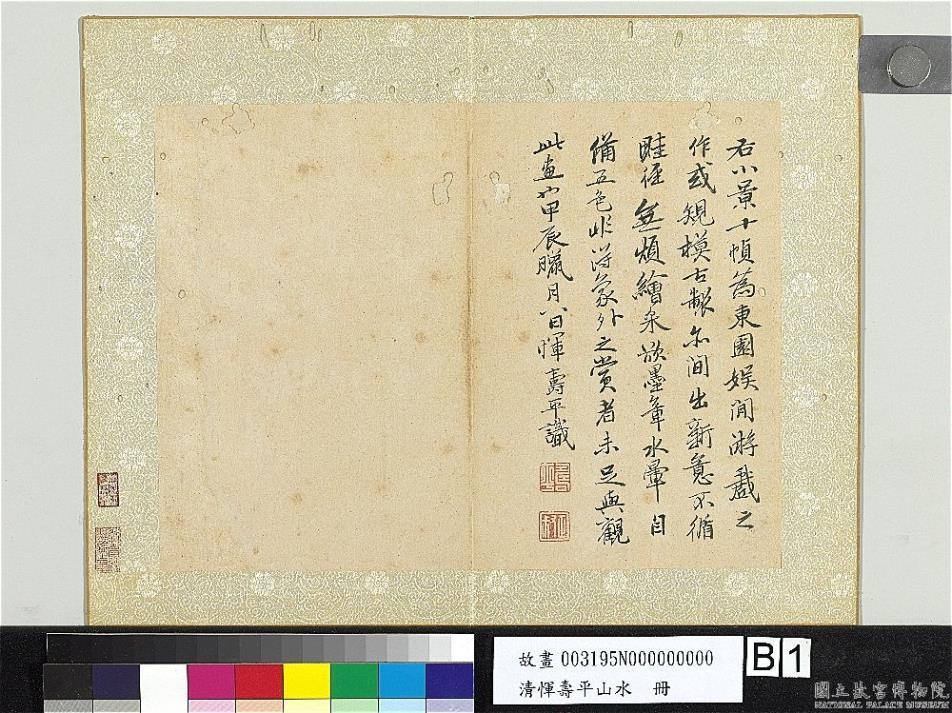 右小景十幀為東園娛閒游戲之
作或規橅古製亦間出新意不循
畦徑無煩繪采故墨章水暈自
備五色非得象外之賞者未足與觀
此畫也甲辰臘月八日惲壽平識
故畫 003195N000000000
清惲壽平山水 冊
B 1
國立故宮博物院
NATIONAL PALACE MUSEUM